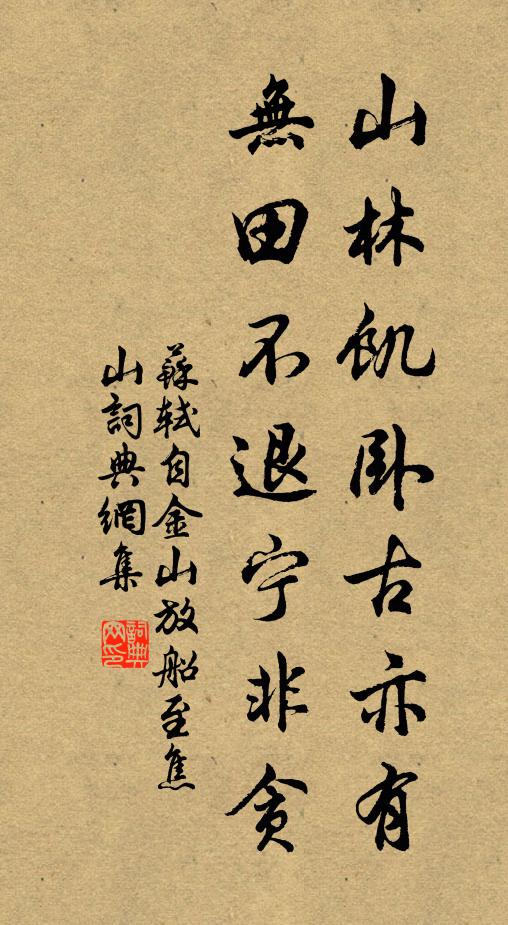 山林飢卧古亦有
無田不退宁非貪
蘇軾自金山放船至焦
山詞典網集
詞典
网印